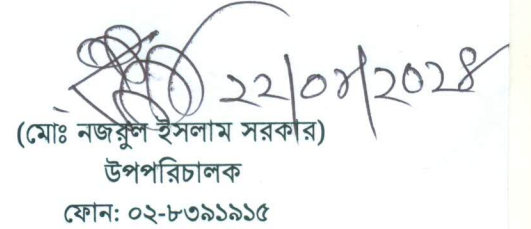 ২২/০৮/২০২৪
(মোঃ নজরুল ইসলাম সরকার)
উপপরিচালক
ফোন: ০২-৮৩৯১৯১৫